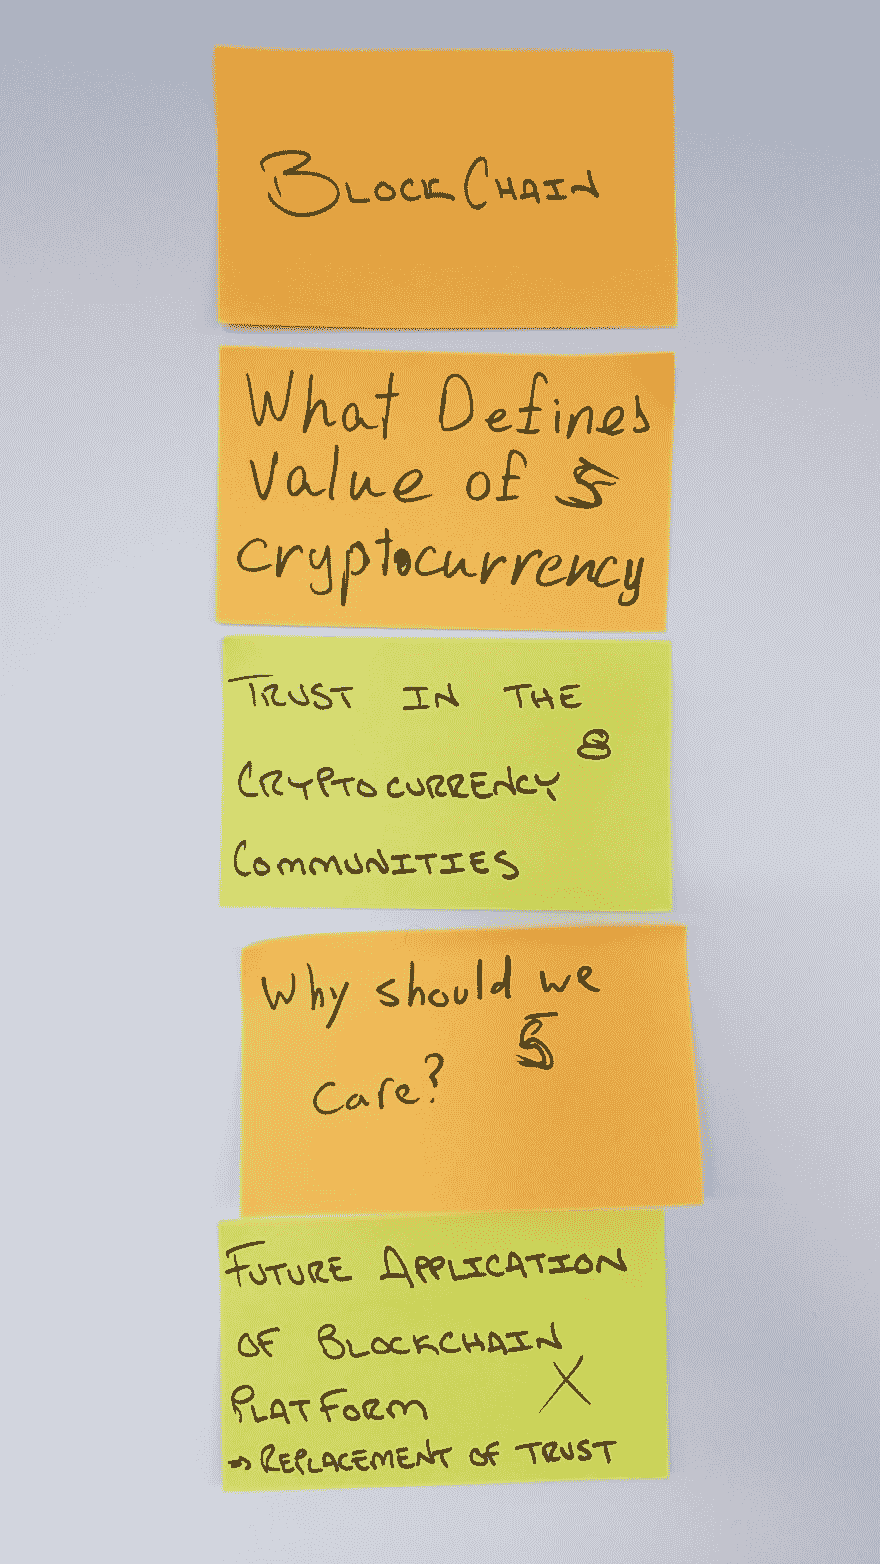 BLOCKCHAIN
What Defines
Value of 5
cryptocurrency
TRUST IN THE
8
CRYPTOCURRENCY
COMMUNITIES
Why should we
5
Care?
FUTURE APPLICATION
OF BLOCKCHAIN
X
PLATFORM
→ REPLACEMENT OF TRUST